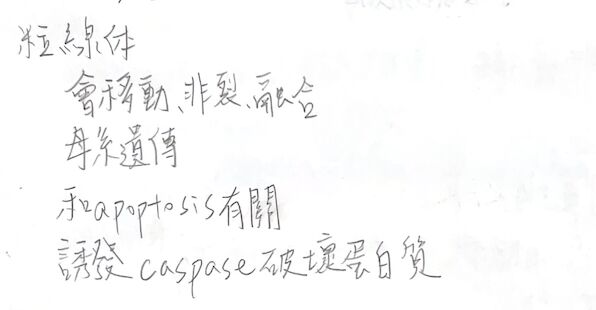 粒線体
會移動、非裂、融合
母系遺傳
和apoptosis有關
誘發caspase破壞蛋白質